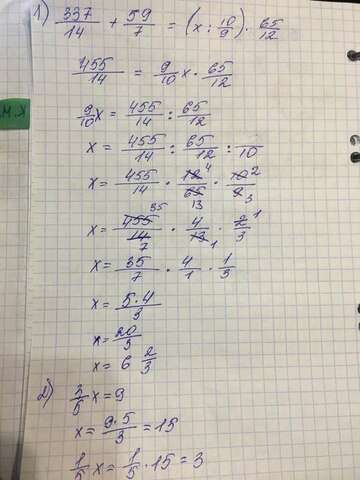 1) 337/14 + 59/7 = (x : 10/9) · 65/12
455/14 = 9/10 x · 65/12
9/10 x = 455/14 : 65/12
x = 455/14 : 65/12 : /10
x = 455/14 · 12/65 · 10/9 4 2 13 3
x = 455/14 · 4/13 · 2/3 35 1 7 1
x = 35/7 · 4/1 · 1/3
x = 5·4/3
x = 20/3
x = 6 2/3
2) 3/5 x = 9
x = 9·5/3 = 15
1/5 x = 1/5 · 15 = 3